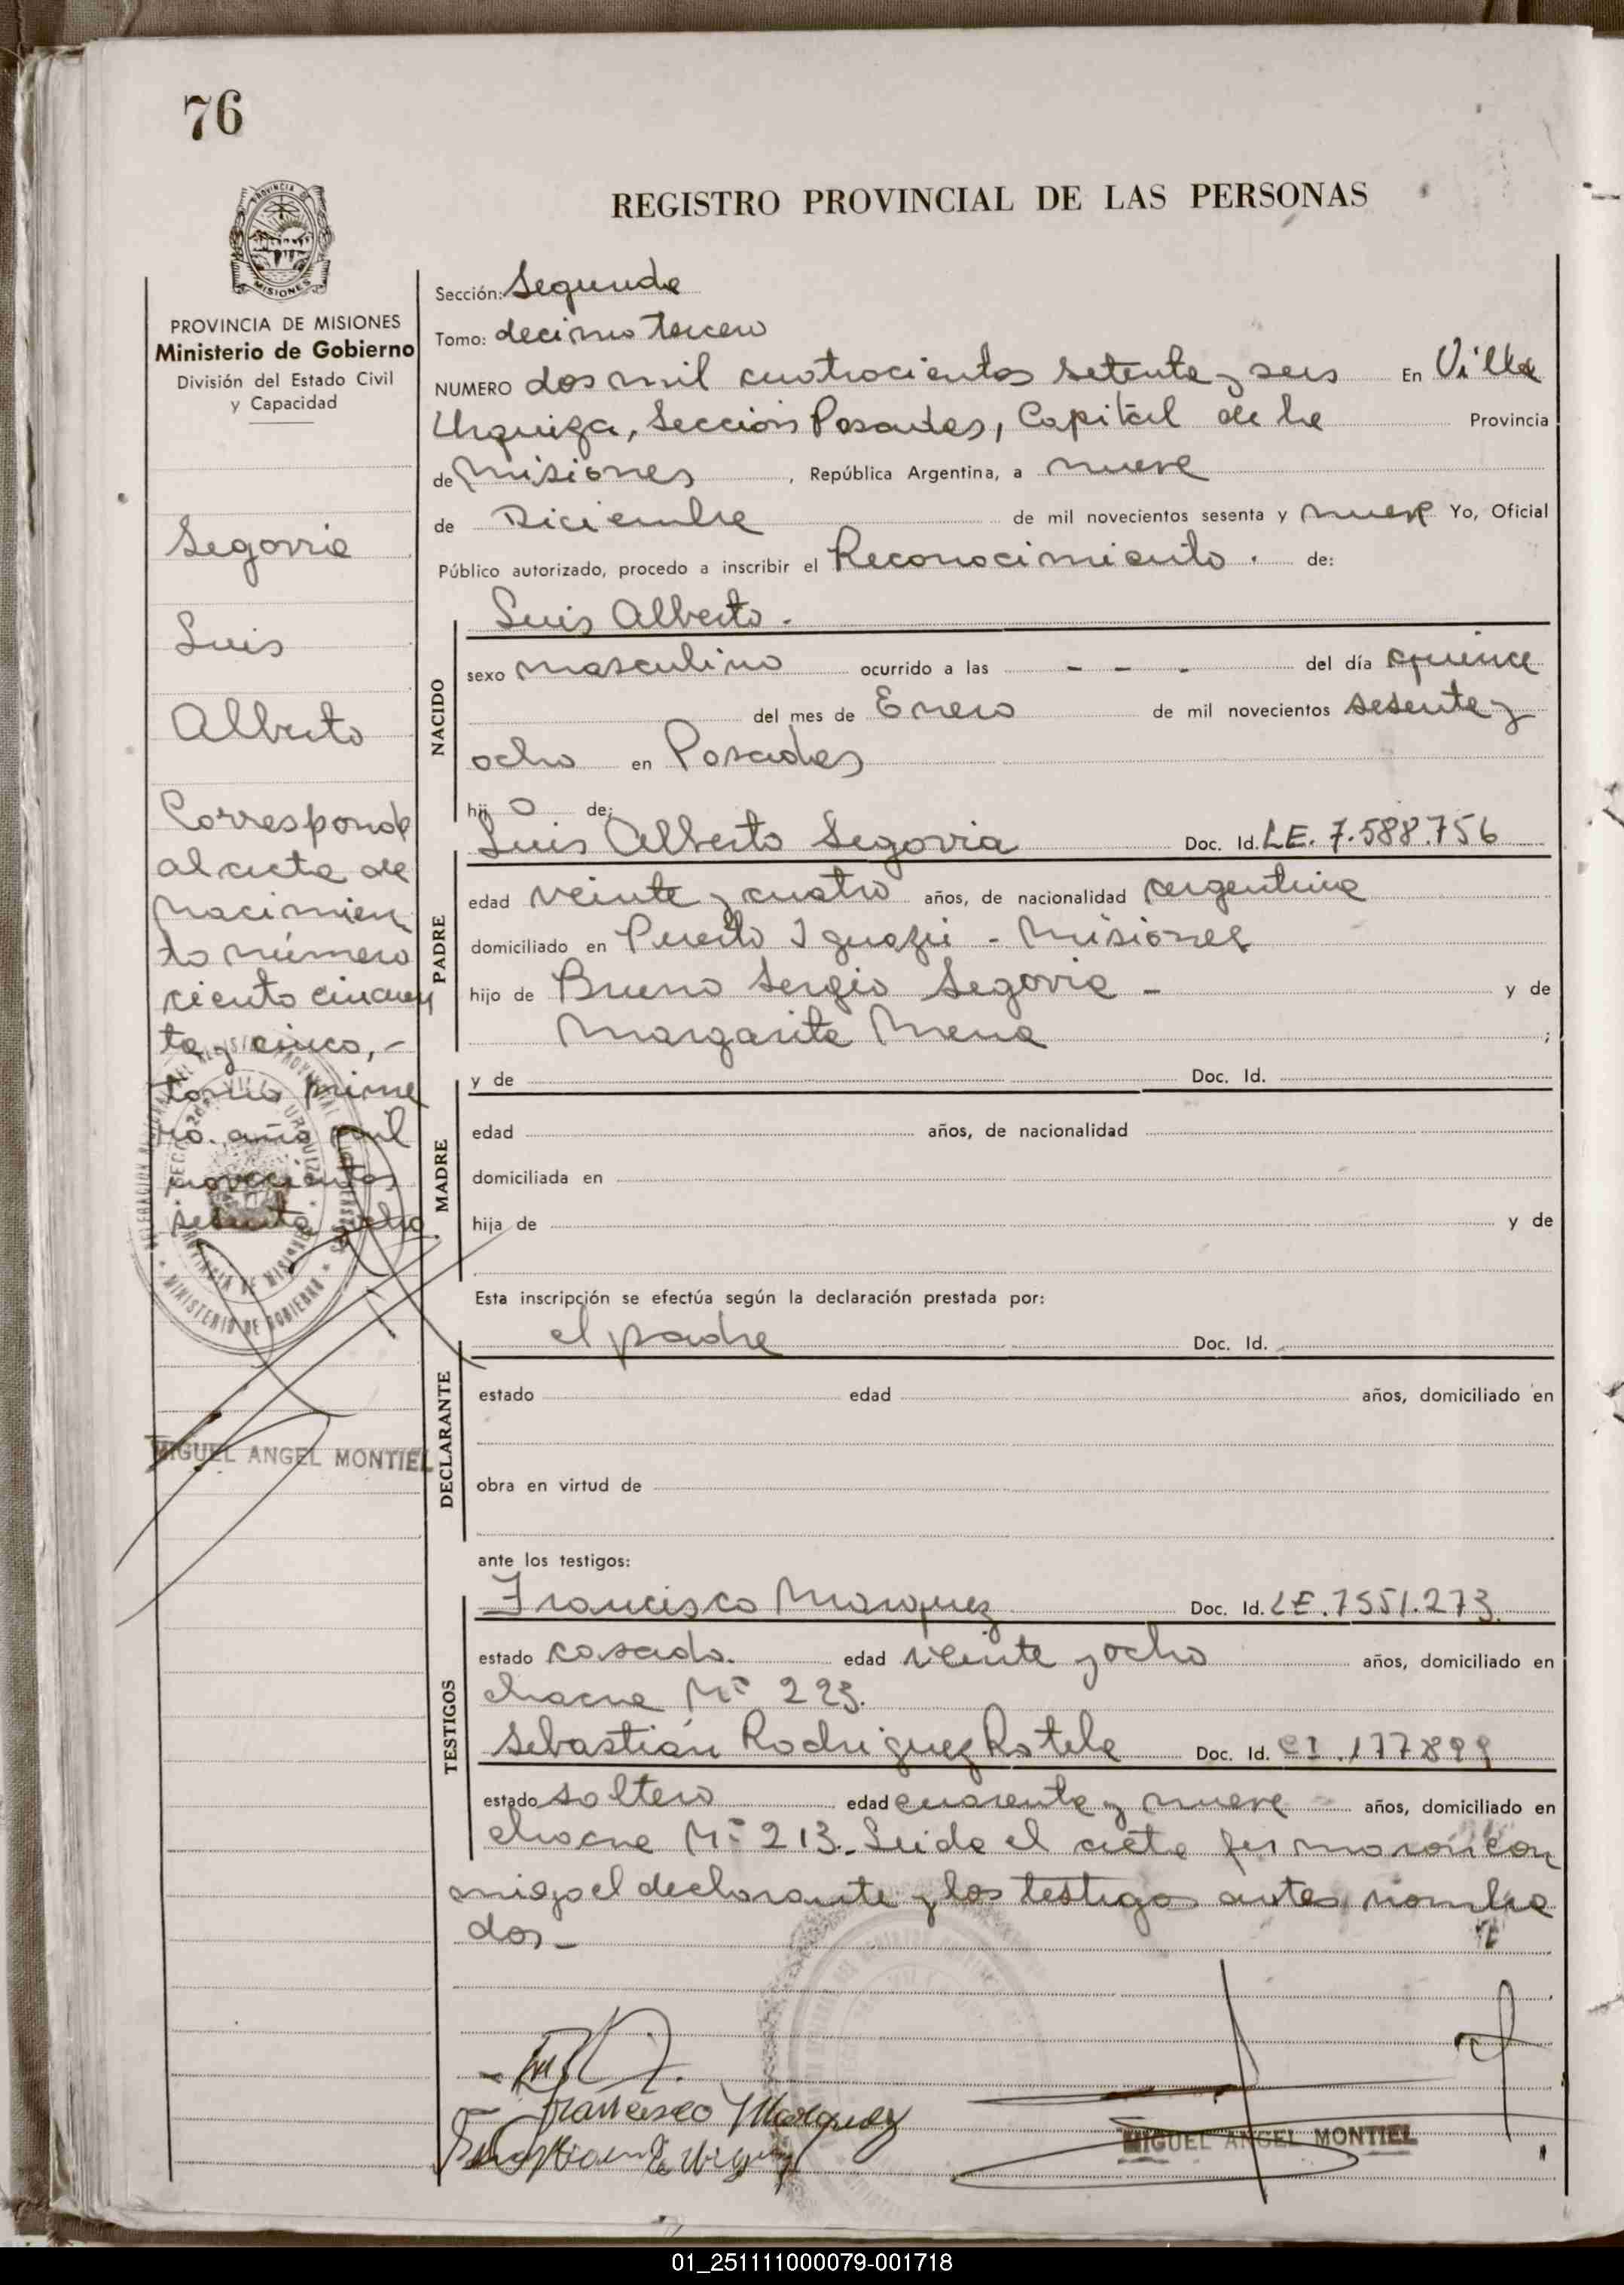 76
REGISTRO PROVINCIAL DE LAS PERSONAS
PROVINCIA DE MISIONES
Ministerio de Gobierno
División del Estado Civil
y Capacidad
Segovia
Luis
Alberto
Corresponde
al acta de
Nacimien
to número
ciento cincuen
ta y cinco,-
tomo prime
ro. año mil
novecientos
sesenta y ocho
MIGUEL ANGEL MONTIEL
Sección: Segunda
Tomo: decimo tercero
NUMERO dos mil cuatrocientos setenta y seis En Villa
Urquiza, Sección Posadas, Capital de la Provincia
de Misiones, República Argentina, a nueve
de Diciembre de mil novecientos sesenta y nueve Yo, Oficial
Público autorizado, procedo a inscribir el Reconocimiento . de:
NACIDO
Luis Alberto.
sexo masculino ocurrido a las - - - del día quince
del mes de Enero de mil novecientos sesenta y
ocho en Posadas
hijo de:
PADRE
Luis Alberto Segovia Doc. Id. LE. 7.588.756
edad veinte y cuatro años, de nacionalidad argentina
domiciliado en Puerto Iguazú - Misiones
hijo de Bruno Sergio Segovia - y de
Margarita Mena ;
MADRE
y de Doc. Id.
edad años, de nacionalidad
domiciliada en
hija de y de
Esta inscripción se efectúa según la declaración prestada por:
DECLARANTE
el padre Doc. Id.
estado edad años, domiciliado en
obra en virtud de
ante los testigos:
TESTIGOS
Francisco Marquez Doc. Id. LE. 7551.273.
estado casado. edad veinte y ocho años, domiciliado en
chacra Nº 223.
Sebastián Rodriguez Rotela Doc. Id. CI. 177899
estado soltero edad cuarenta y nueve años, domiciliado en
chacra Nº 213. Leida el acta firmaron con
migo el declarante y los testigos antes nombra
dos-
Francisco Marquez
MIGUEL ANGEL MONTIEL
01_251111000079-001718